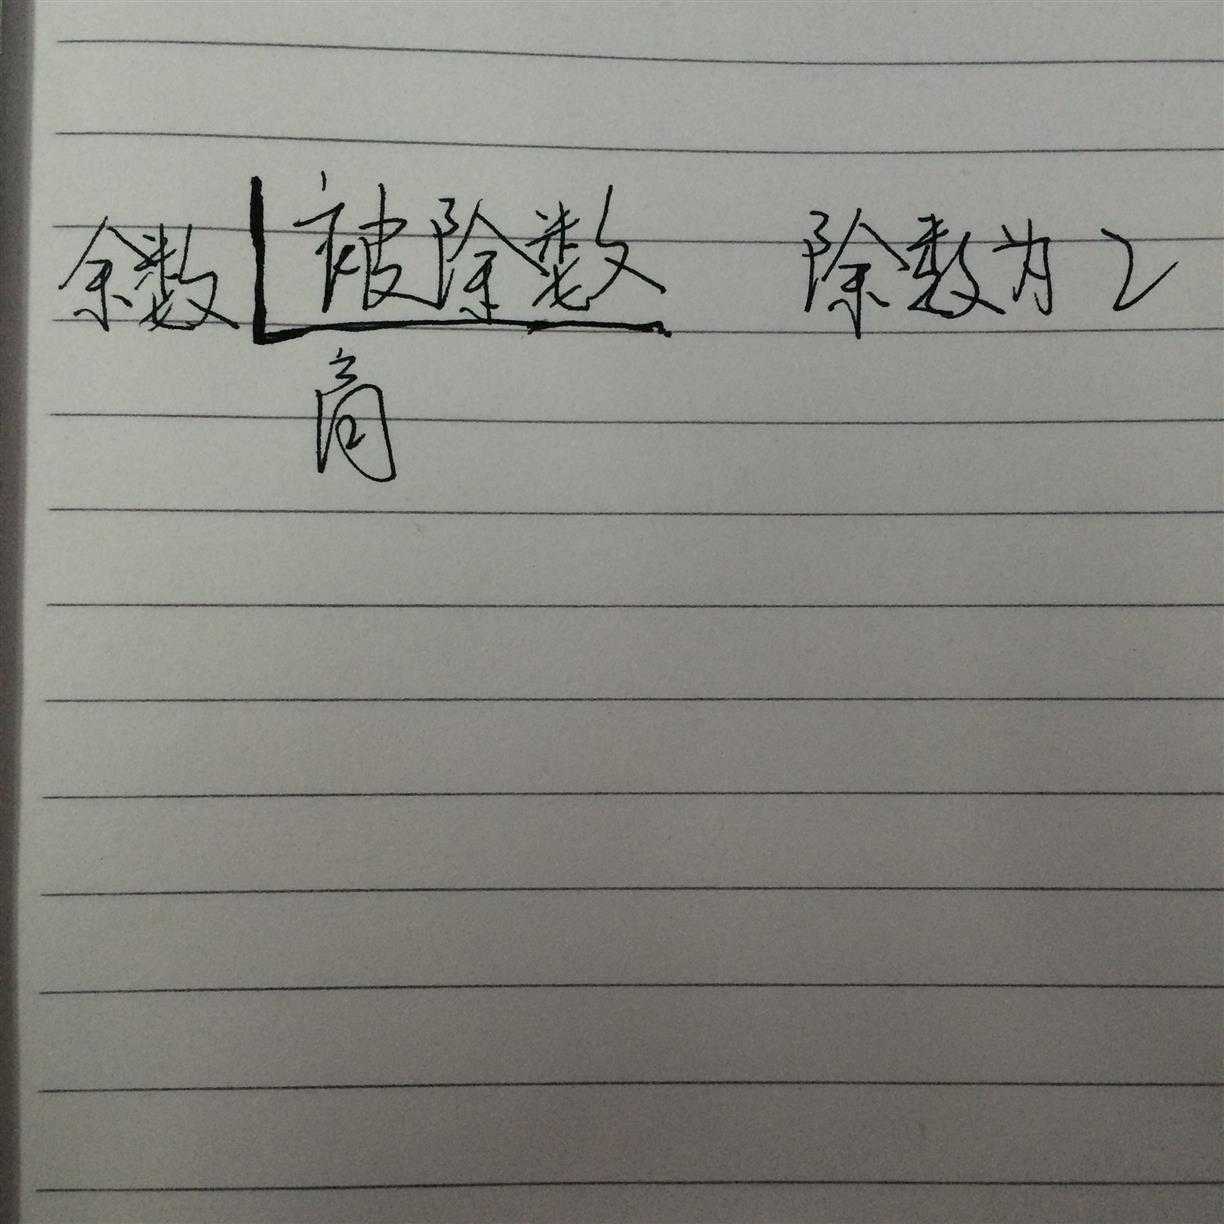 余数 被除数 除数为2
商